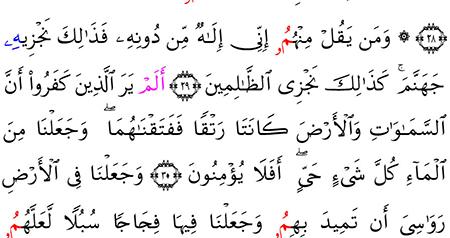 ﴿٢٨﴾ ۞ وَمَن يَقُلْ مِنْهُمُۥٓ إِنِّىٓ إِلَٰهٌ مِّن دُونِهِۦ فَذَٰلِكَ نَجْزِيهِۦ
جَهَنَّمَ ۚ كَذَٰلِكَ نَجْزِى ٱلظَّٰلِمِينَ ﴿٢٩﴾ أَلَمْ يَرَ ٱلَّذِينَ كَفَرُوٓا۟ أَنَّ
ٱلسَّمَٰوَٰتِ وَٱلْأَرْضَ كَانَتَا رَتْقًا فَفَتَقْنَٰهُمَا ۖ وَجَعَلْنَا مِنَ
ٱلْمَآءِ كُلَّ شَىْءٍ حَىٍّ ۖ أَفَلَا يُؤْمِنُونَ ﴿٣٠﴾ وَجَعَلْنَا فِى ٱلْأَرْضِ
رَوَٰسِىَ أَن تَمِيدَ بِهِمُۥ وَجَعَلْنَا فِيهَا فِجَاجًا سُبُلًا لَّعَلَّهُمُۥ